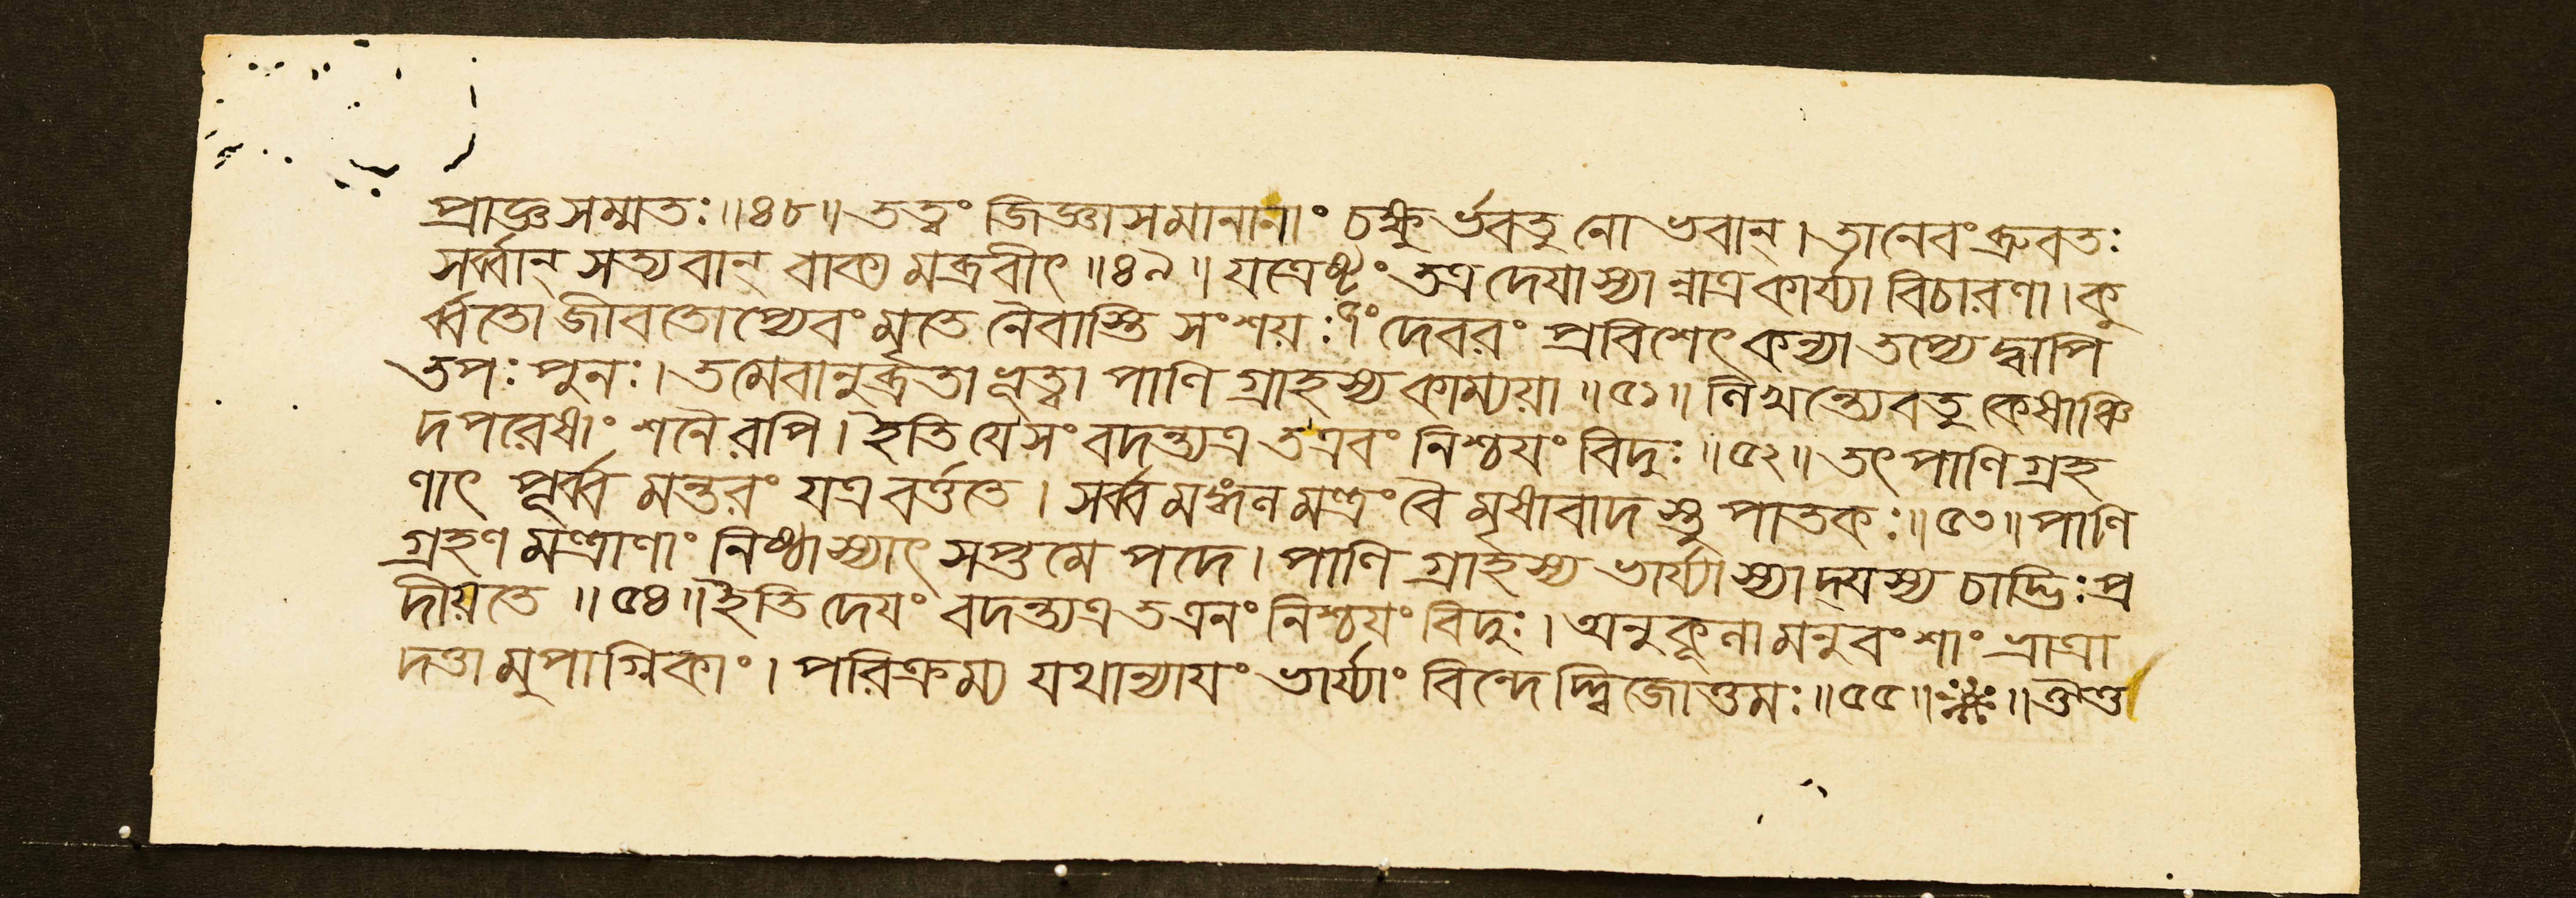 প্রাজ্ঞসম্মতঃ॥৪৮॥ তত্বং জিজ্ঞাসমানানাং চক্ষুর্ভবতু নো ভবান্। তানেবং ব্রুবতঃ
সর্ব্বান্ সত্যবান্ বাক্য মব্রবীৎ॥৪৯॥ যত্রেষ্টং তত্র দেয়া স্যা ন্নাত্র কার্য্যা বিচারণা। কু
র্ব্বতো জীবতোপ্যেবং মৃতে নৈবাস্তি সংশয়ঃ৫০ দেবরং প্রবিশেৎ কন্যা তপ্যে দ্বাপি
তপঃ পুনঃ। তমেবানুব্রতা ভূত্বা পাণি গ্রাহস্য কাম্যয়া॥৫১॥ নিখন্ত্যেবতু কেষাঞ্চি
দপরেষাং শনৈরপি। ইতি যে সং বদন্ত্যত্র ত এবং নিশ্চয়ং বিদুঃ॥৫২॥ তৎ পাণি গ্রহ
ণাৎ পূর্ব্ব মন্তরং যত্র বর্ত্ততে। সর্ব্ব মঙ্গন মন্ত্রং বৈ মৃষাবাদ স্তু পাতকঃ॥৫৩॥ পাণি
গ্রহণ মন্ত্রাণাং নিষ্ঠা স্যাৎ সপ্তমে পদে। পাণি গ্রাহস্য ভার্য্যা স্যা দ্যস্য চাদ্ভিঃ প্র
দীয়তে॥৫৪॥ ইতি দেয়ং বদন্ত্যত্র ত এনং নিশ্চয়ং বিদুঃ। অনুকূনা মনুবংশাং ভ্রাত্রা
দত্তা মুপাগ্নিকাং। পরিক্রম্য যথান্যায়ং ভার্য্যাং বিন্দে দ্দ্বিজোত্তমঃ॥৫৫॥ ॥